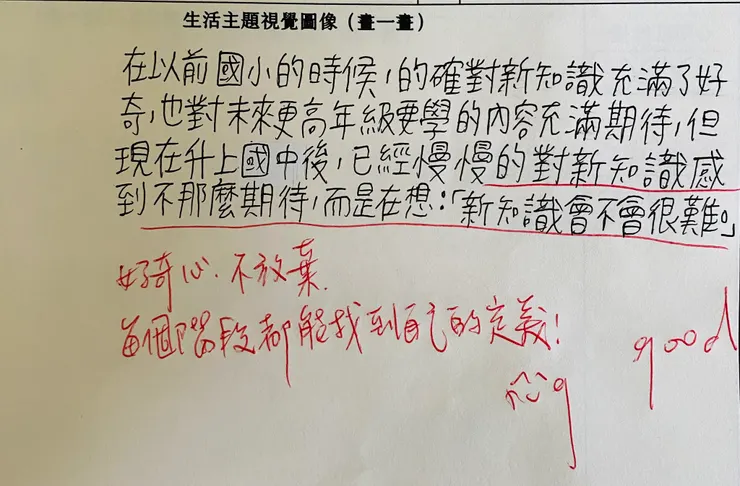 生活主題視覺圖像（畫一畫）
在以前國小的時候，的確對新知識充滿了好
奇，也對未來更高年級要學的內容充滿期待，但
現在升上國中後，已經慢慢的對新知識感
到不那麼期待，而是在想：「新知識會不會很難。」
好奇心．不放棄．
每個階段都能找到自己的定義！
good